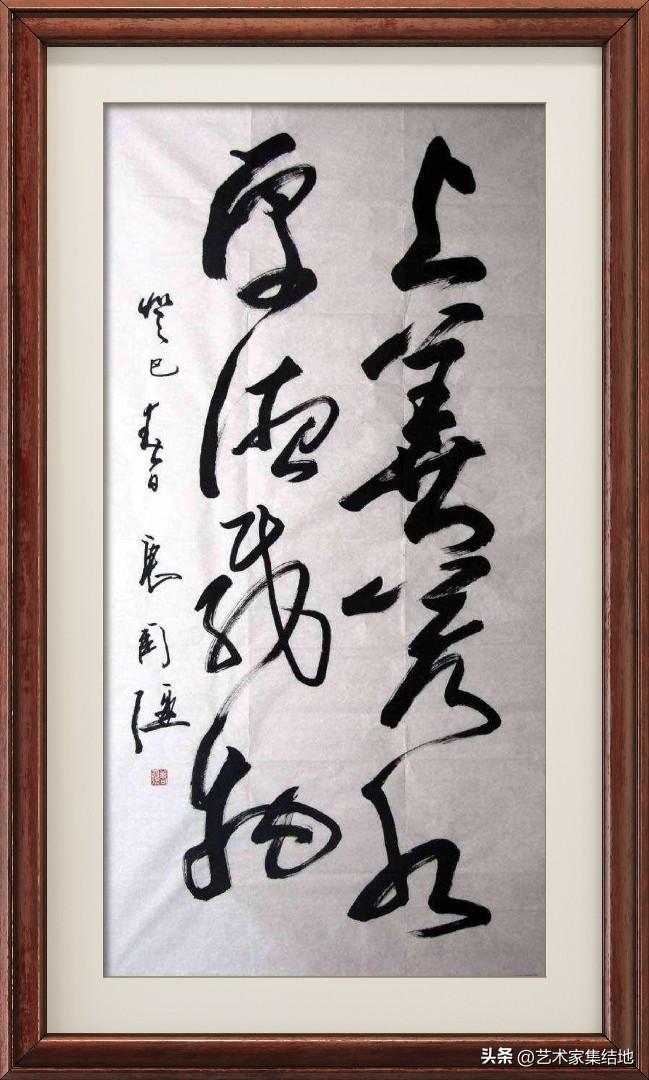 上善若水
厚德载物
癸巳春月
头条 @艺术家集结地